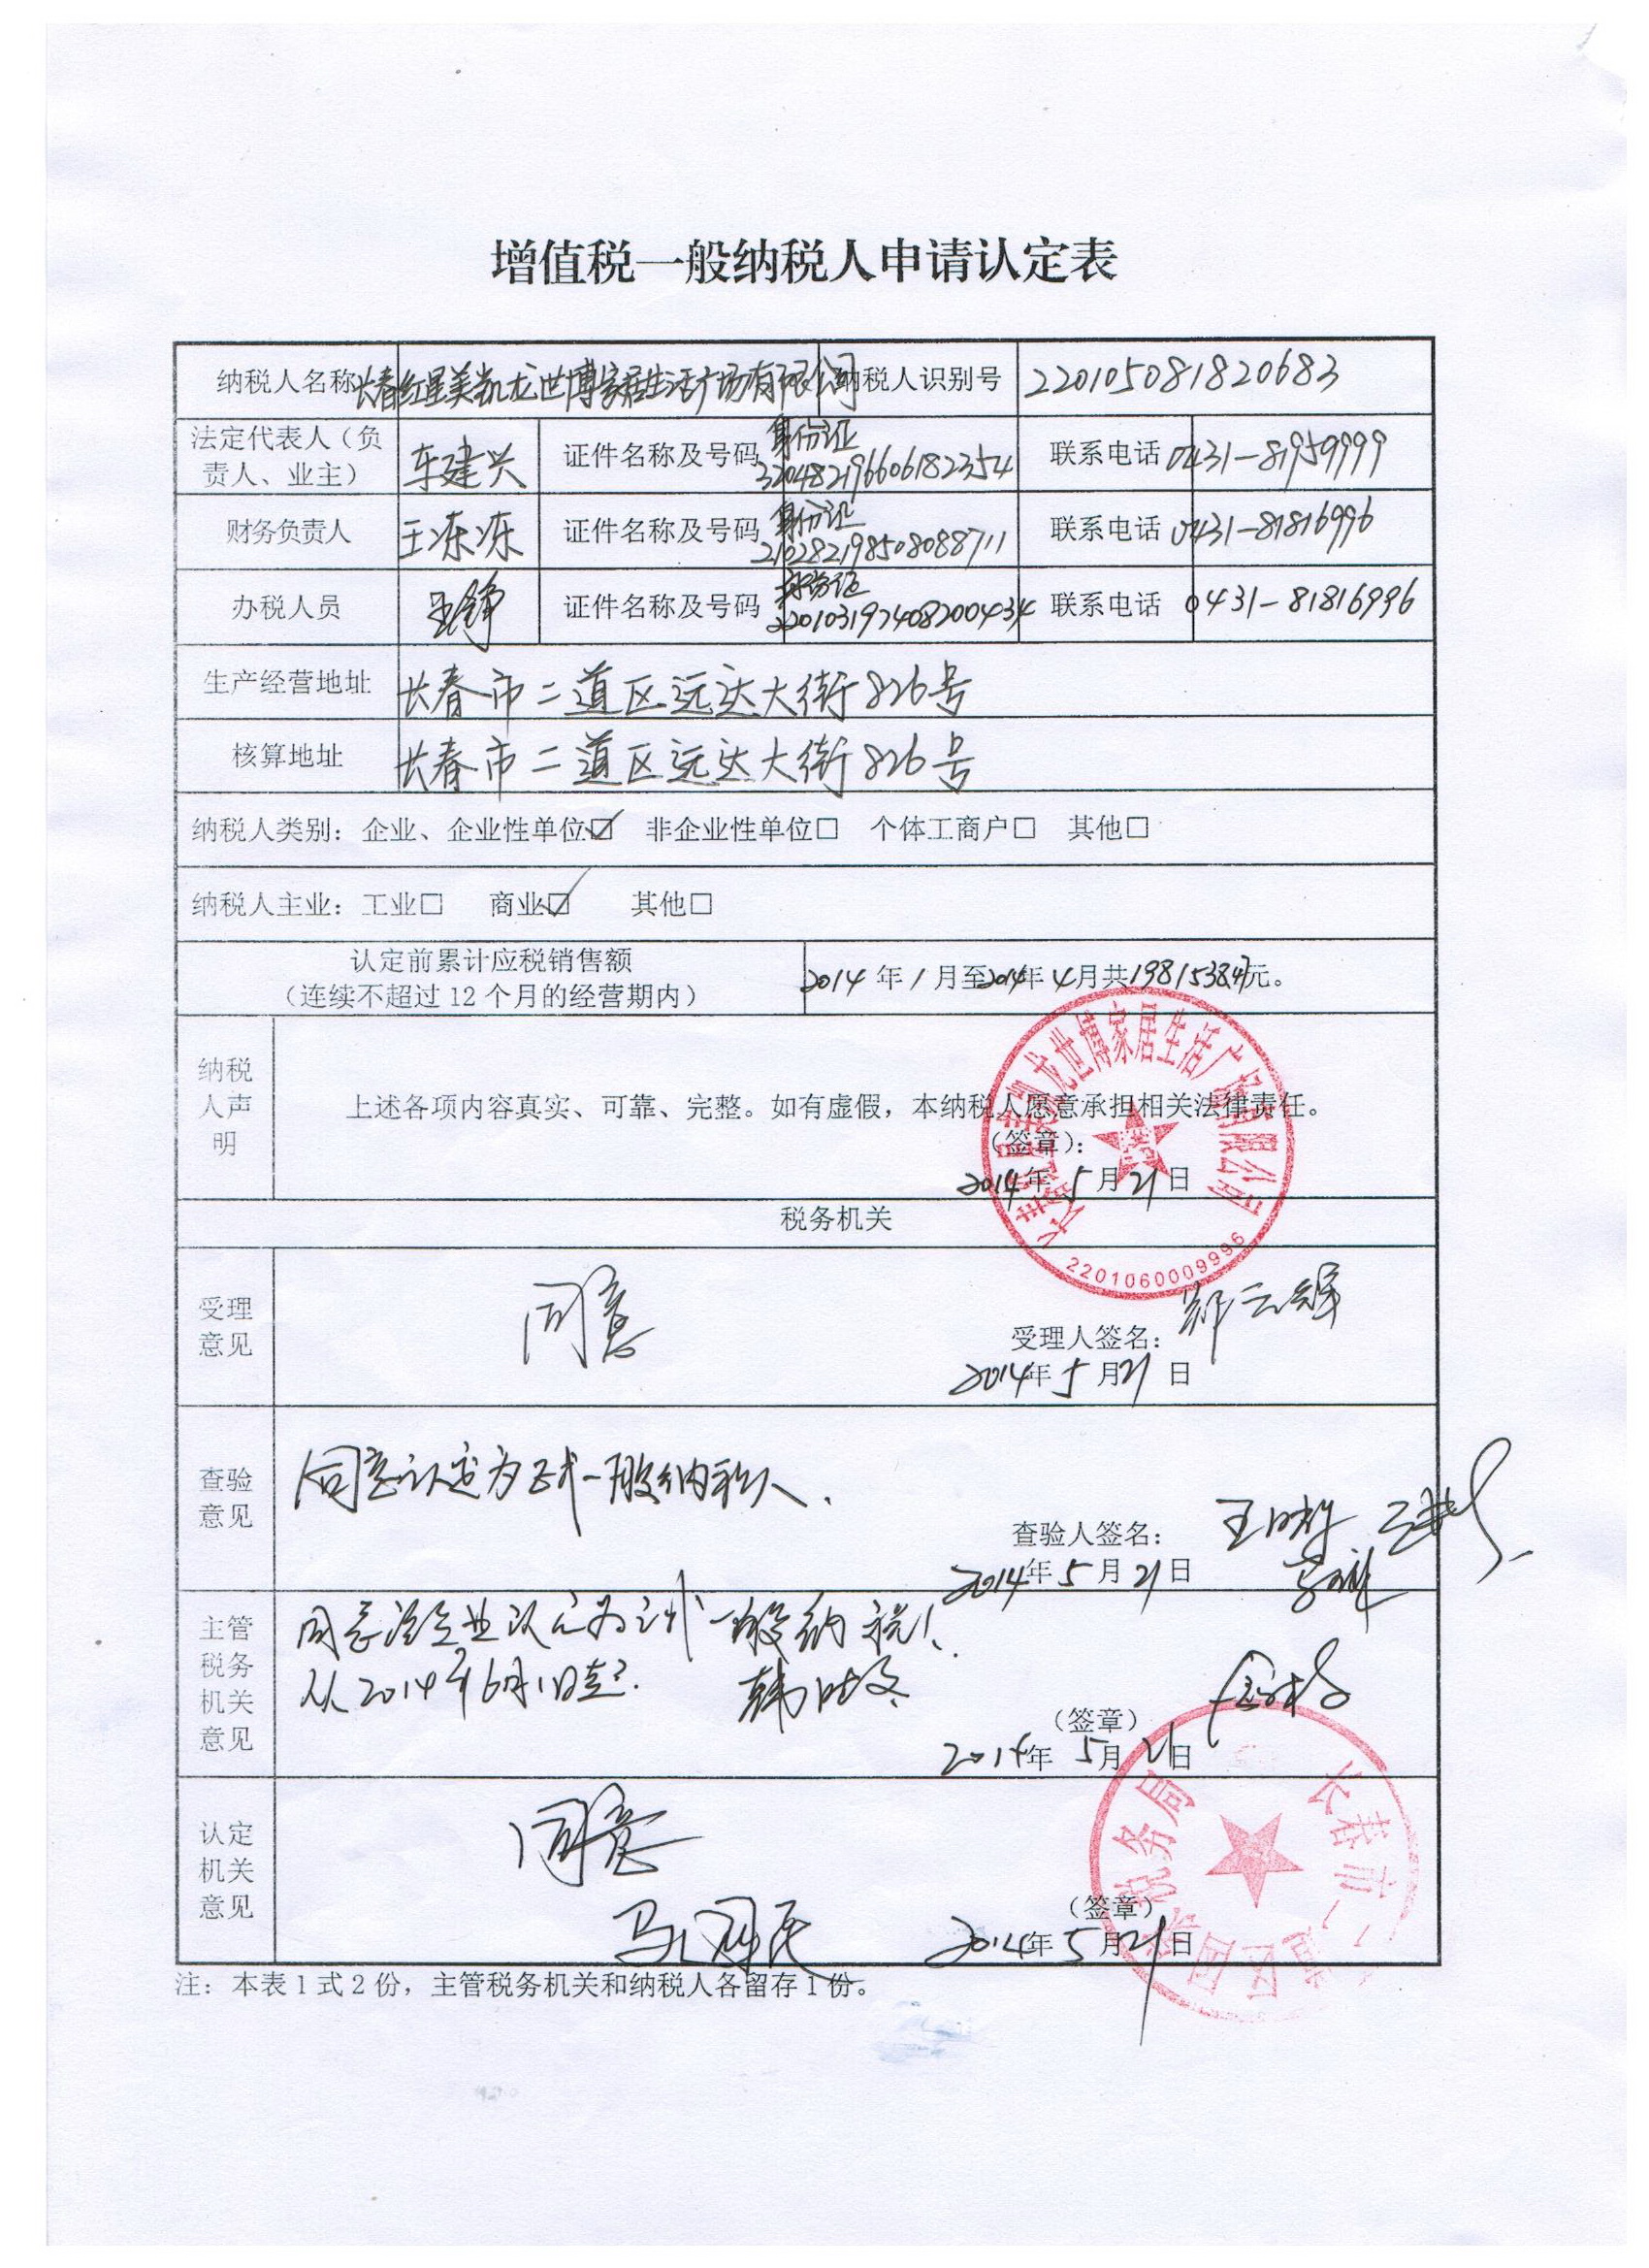 增值税一般纳税人申请认定表
纳税人名称 长春红星美凯龙世博家居生活广场有限公司 纳税人识别号 220105081820683
法定代表人（负责人、业主） 车建兴 证件名称及号码 身份证 320482196606182354 联系电话 0431-81959999
财务负责人 王冻冻 证件名称及号码 身份证 210282198508088711 联系电话 0431-81816996
办税人员 证件名称及号码 身份证 220103197408200434 联系电话 0431-81816996
生产经营地址 长春市二道区远达大街826号
核算地址 长春市二道区远达大街826号
纳税人类别：企业、企业性单位☑ 非企业性单位□ 个体工商户□ 其他□
纳税人主业：工业□ 商业☑ 其他□
认定前累计应税销售额
（连续不超过12个月的经营期内） 2014年1月至2014年4月共1981538.47元。
纳税人声明
上述各项内容真实、可靠、完整。如有虚假，本纳税人愿意承担相关法律责任。
（签章）：
2014年5月21日
长春红星美凯龙世博家居生活广场有限公司
2201060009996
税务机关
受理意见
同意
受理人签名：
2014年5月21日
查验意见
同意认定为正式一般纳税人、
查验人签名：
2014年5月21日
主管税务机关意见
同意该企业认定为正式一般纳税人、
从2014年6月1日起.
（签章）
2014年5月21日
认定机关意见
同意
（签章）
2014年5月21日
长春市二道区国家税务局
注：本表1式2份，主管税务机关和纳税人各留存1份。